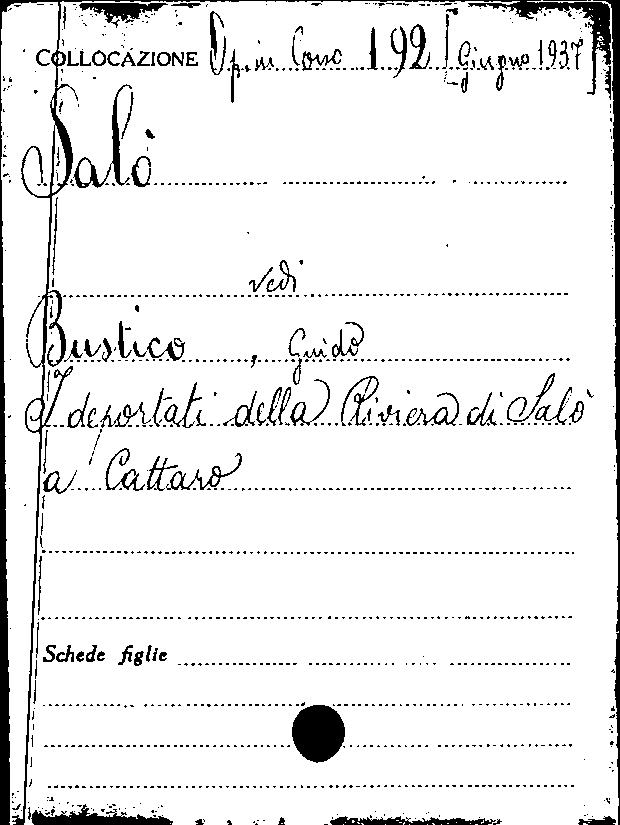 COLLOCAZIONE Op. in Cons 192 [Giugno 1937]
Salò
vedi
Bustico, Guido
I deportati della Riviera di Salò
a Cattaro
Schede figlie